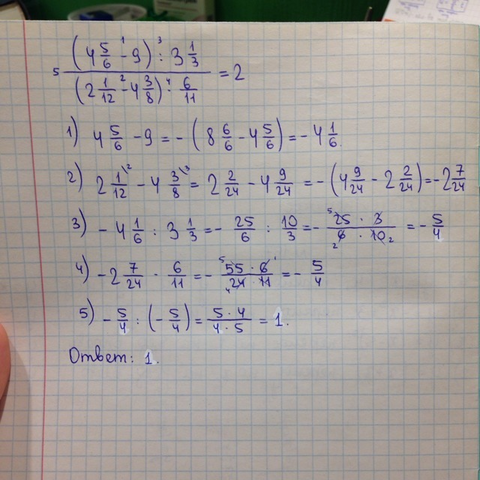 5 ((4 5/6 -¹ 9) :³ 3 1/3) / ((2 1/12 -² 4 3/8) ·⁴ 6/11) = 2
1) 4 5/6 - 9 = - (8 6/6 - 4 5/6) = - 4 1/6
2) 2 1/12 \2 - 4 3/8 \3 = 2 2/24 - 4 9/24 = - (4 9/24 - 2 2/24) = - 2 7/24
3) - 4 1/6 : 3 1/3 = - 25/6 : 10/3 = - (⁵25 · 3)/(₂6 · 10₂) = - 5/4
4) - 2 7/24 · 6/11 = - (⁵55 · 6¹)/(₄24 · 11) = - 5/4
5) - 5/4 : (- 5/4) = (5 · 4)/(4 · 5) = 1.
Ответ: 1.